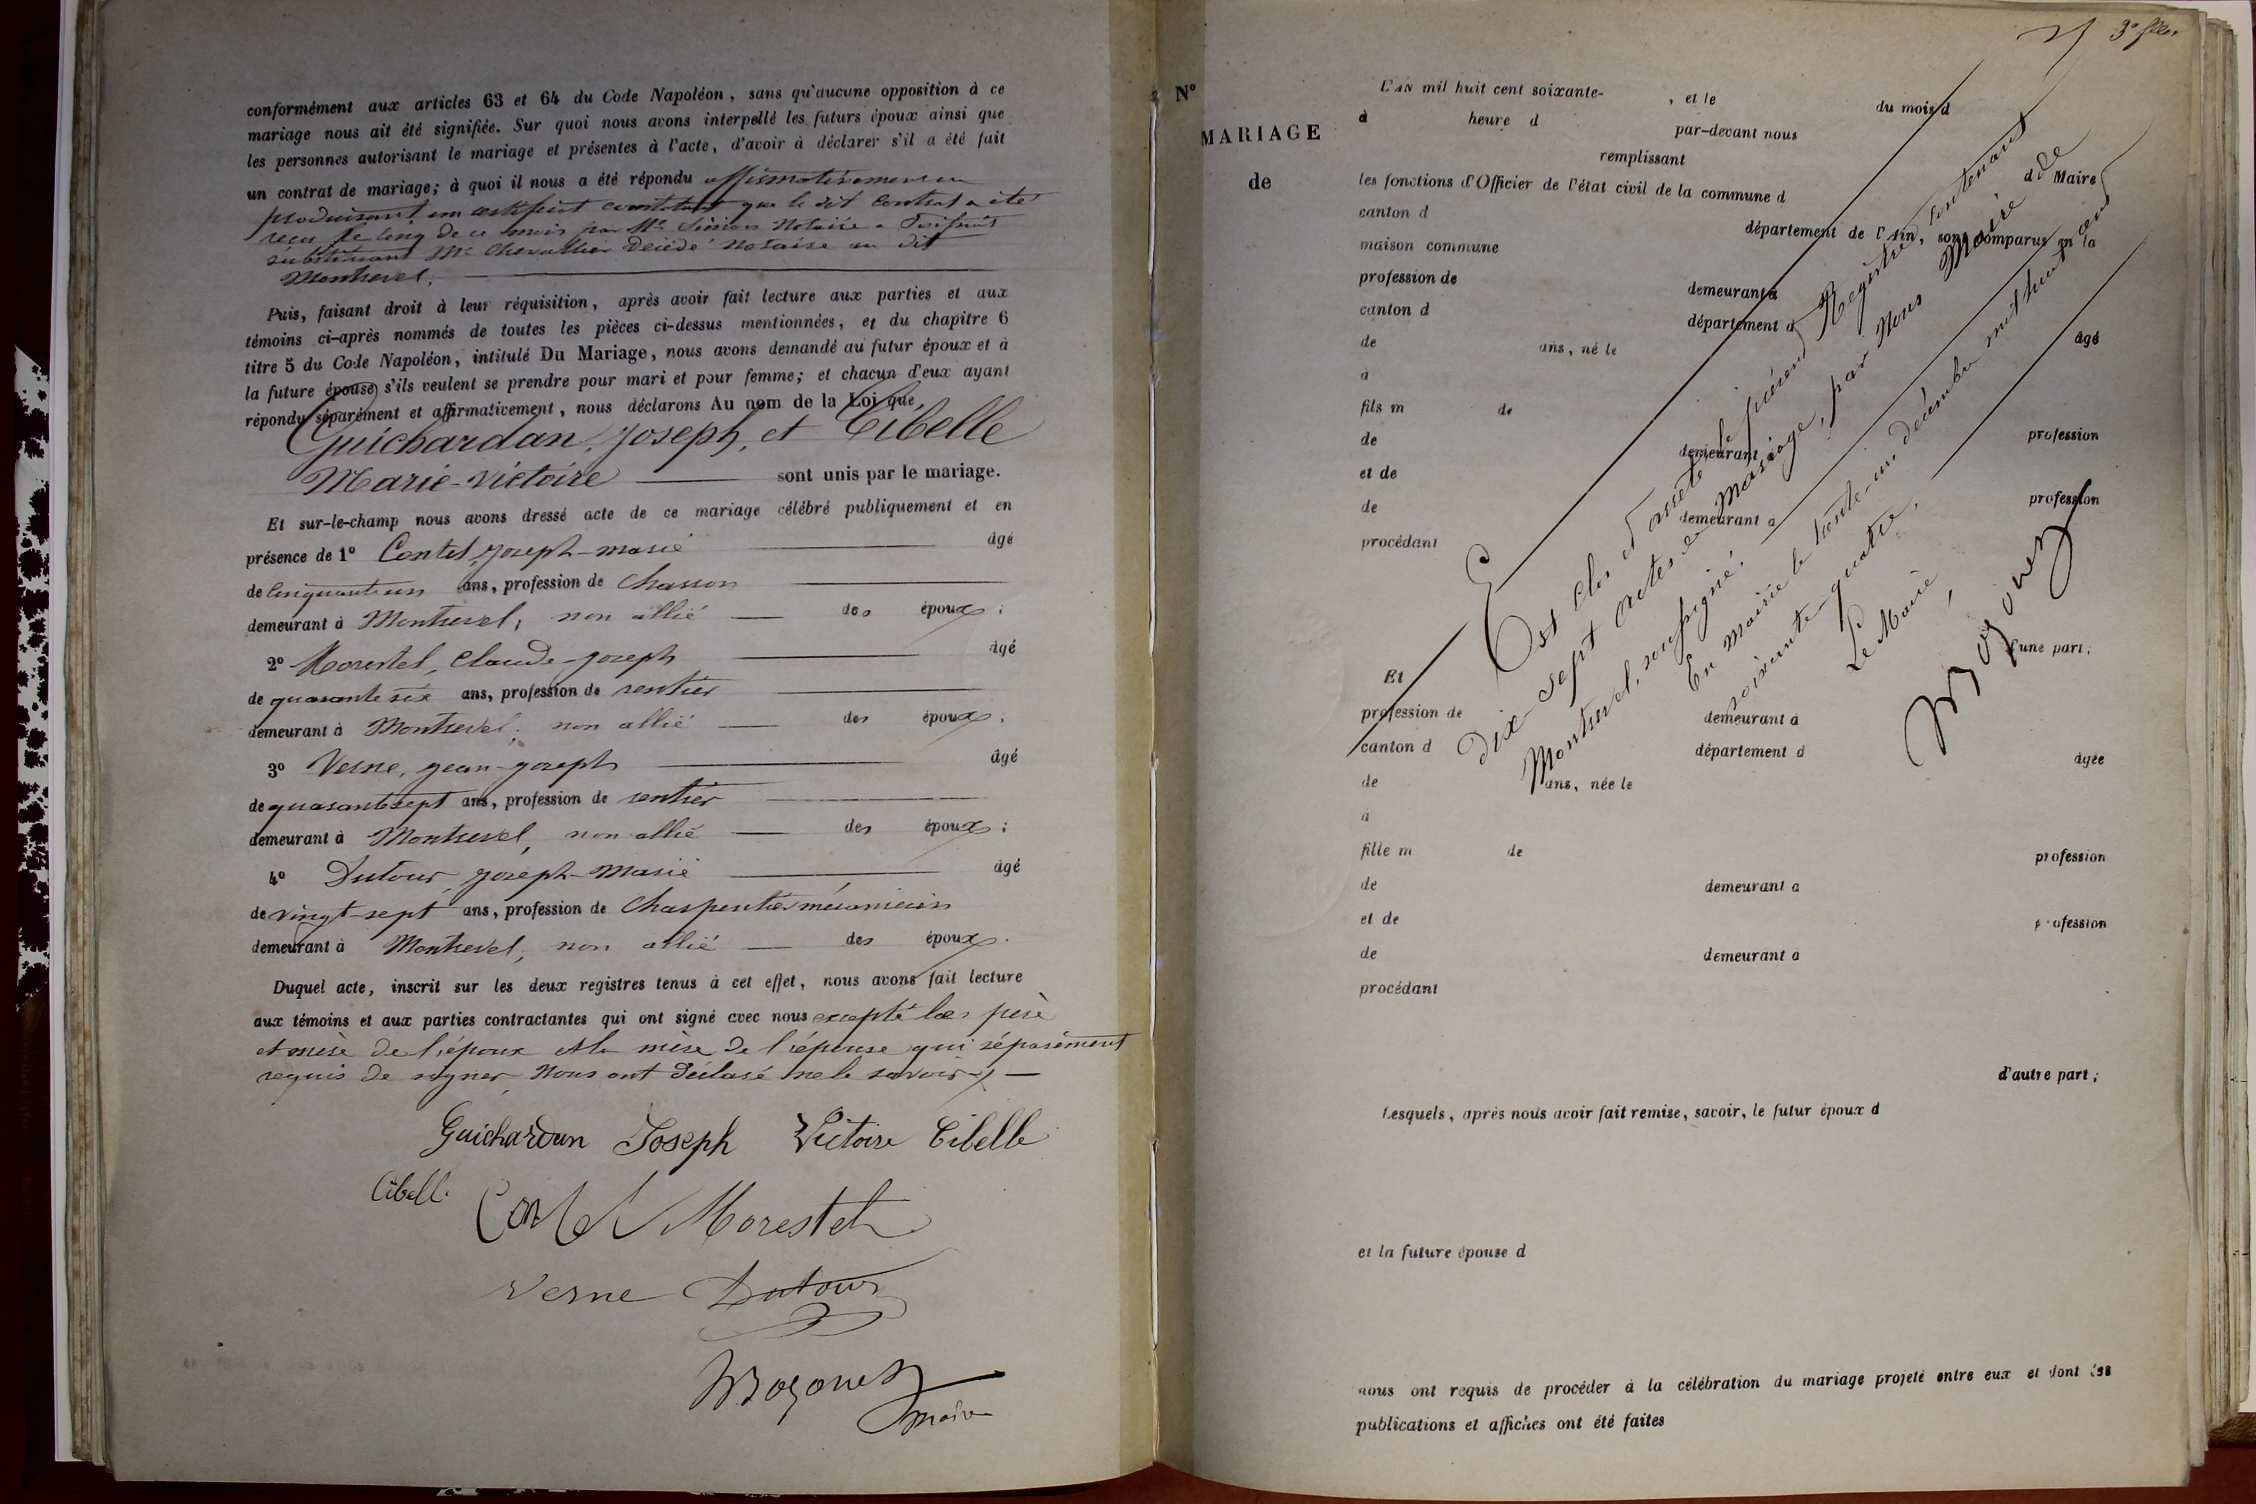 conformément aux articles 63 et 64 du Code Napoléon, sans qu'aucune opposition à ce
mariage nous ait été signifiée. Sur quoi nous avons interpellé les futurs époux ainsi que
les personnes autorisant le mariage et présentes à l'acte, d'avoir à déclarer s'il a été fait
un contrat de mariage; à quoi il nous a été répondu affirmativement en
produisant un certificat constatant que le dit Contrat a été
reçu le cinq de ce mois par Me Simon Notaire a
substituant Me Chevallier décédé Notaire au dit
Montrevel.
Puis, faisant droit à leur réquisition, après avoir fait lecture aux parties et aux
témoins ci-après nommés de toutes les pièces ci-dessus mentionnées, et du chapitre 6
titre 5 du Code Napoléon, intitulé Du Mariage, nous avons demandé au futur époux et à
la future épouse s'ils veulent se prendre pour mari et pour femme; et chacun d'eux ayant
répondu séparément et affirmativement, nous déclarons Au nom de la Loi que
Guichardan, Joseph, et Cibelle
Marie-Victoire sont unis par le mariage.
Et sur-le-champ nous avons dressé acte de ce mariage célébré publiquement et en
présence de 1° Contet, Joseph-marie âgé
de Cinquante un ans, profession de Charron
demeurant à Montrevel, non allié des époux;
2° Morestel, Claude-Joseph âgé
de quarante six ans, profession de rentier
demeurant à Montrevel, non allié des époux;
3° Verne, Jean-Joseph âgé
de quarante sept ans, profession de rentier
demeurant à Montrevel, non allié des époux;
4° Dutour Joseph-Marie âgé
de vingt-sept ans, profession de Charpentier mécanicien
demeurant à Montrevel, non allié des époux.
Duquel acte, inscrit sur les deux registres tenus à cet effet, nous avons fait lecture
aux témoins et aux parties contractantes qui ont signé avec nous excepté les père
et mère de l'époux et la mère de l'épouse qui séparément
requis de signer Nous ont déclaré ne le savoir
Guichardan Joseph Victoire Cibelle
Cibelle Contet Morestel
Verne Dutour
Moyonez
maire
3e
N°
MARIAGE
de
L'AN mil huit cent soixante- , et le du mois d
à heure d par-devant nous
remplissant
les fonctions d'Officier de l'état civil de la commune d d Maire
canton d département de l'Ain, sont comparus en la
maison commune
profession de demeurant à
canton d département d
de ans, né le âgé
à
fils m de
de demeurant profession
et de
de demeurant a profession
procédant
Est clos et arreté le présent Registre contenant
dix-sept actes de Mariage, par Nous Maire de
Montrevel, soussigné.
En Mairie le trente-un décembre mil huit cent
soixante-quatre.
Le Maire,
Moyonez
d'une part;
Et
profession de demeurant à
canton d département d
de ans, née le âgée
à
fille m de profession
de demeurant a
et de profession
de demeurant à
procédant
d'autre part;
Lesquels, après nous avoir fait remise, savoir, le futur époux d
et la future épouse d
nous ont requis de procéder à la célébration du mariage projeté entre eux et dont les
publications et affiches ont été faites